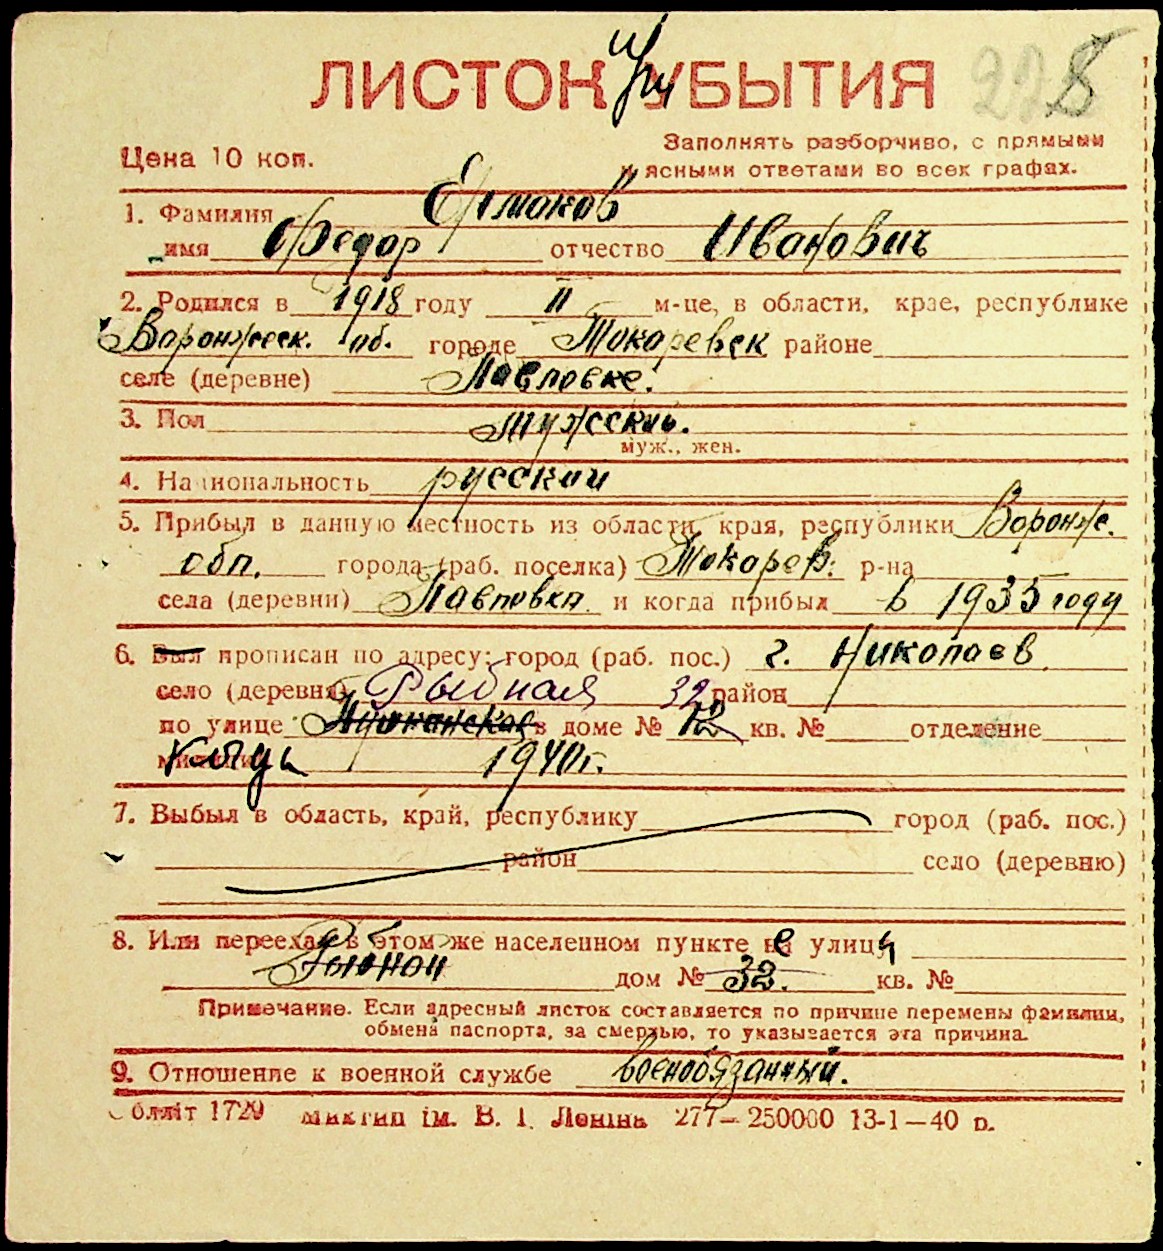 ЛИСТОК УБЫТИЯ 228
Цена 10 коп.
Заполнять разборчиво, с прямыми
и ясными ответами во всех графах.
1. Фамилия Ермаков
имя Федор отчество Иванович
2. Родился в 1918 году II м-це, в области, крае, республике
Воронжеск. об. городе Токаревск районе
селе (деревне) Павловке.
3. Пол мужской.
муж., жен.
4. Национальность русский
5. Прибыл в данную местность из области, края, республики Воронже.
обл. города (раб. поселка) Токарев. р-на
села (деревни) Павловка и когда прибыл в 1935 году
6. Был прописан по адресу: город (раб. пос.) г. Николаев
село (деревня) Рыбная 32 район
по улице в доме № 12 кв. № отделение
милиции 1940 г.
7. Выбыл в область, край, республику город (раб. пос.)
район село (деревню)
8. Или переехал в этом же населенном пункте не улицу
Рыбной дом № 32. кв. №
Примечание. Если адресный листок составляется по причине перемены фамилии,
обмена паспорта, за смертью, то указывается эта причина.
9. Отношение к военной службе военобязанный.
Обллiт 1729 iм. В. I. Ленiна 277—250000 13-1—40 р.